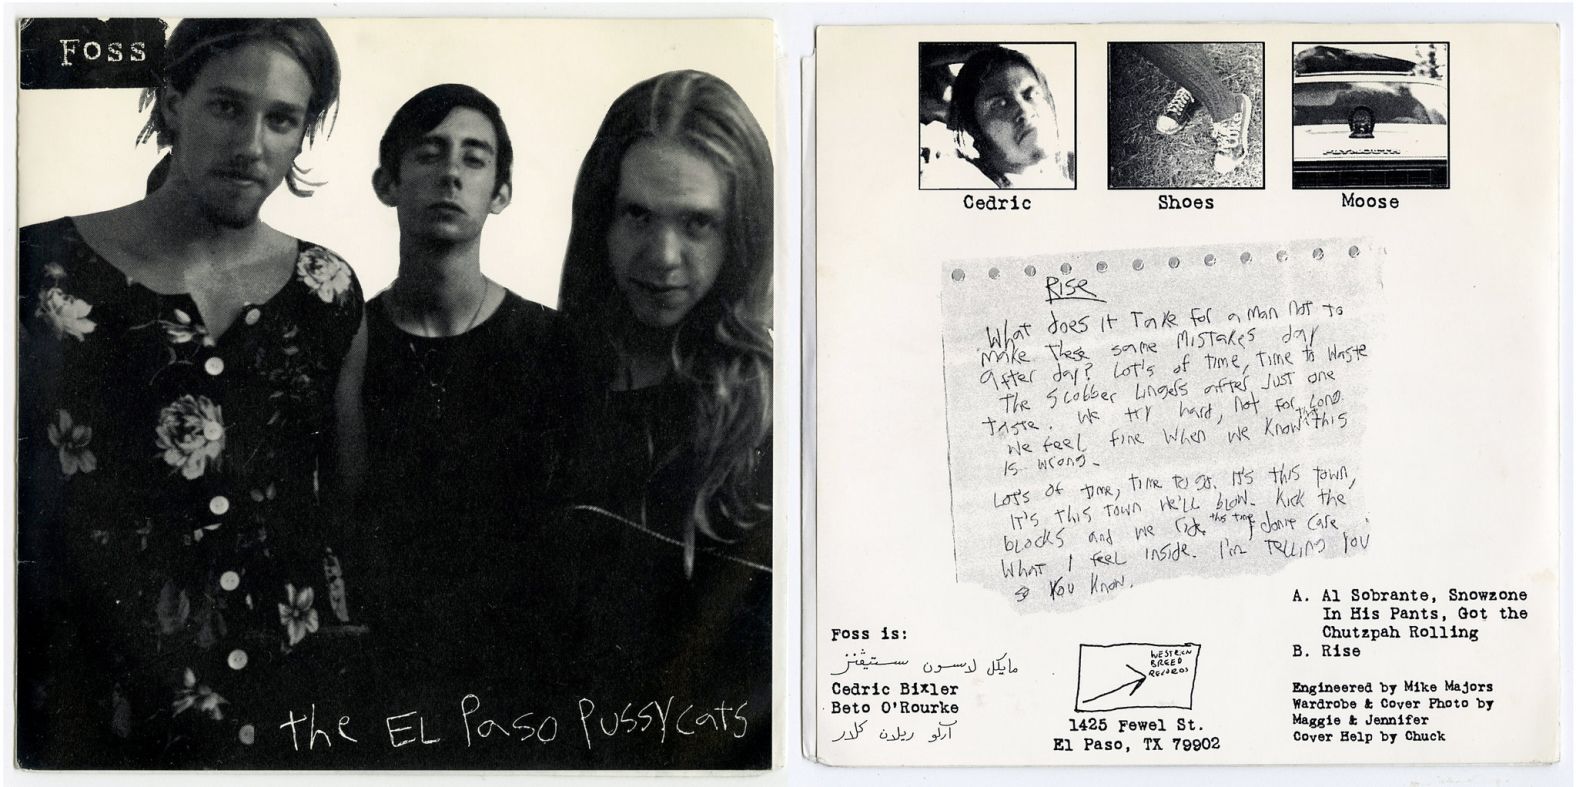 Foss
the EL Paso Pussycats
Cedric
Shoes
Moose
PLYMOUTH
Rise
What does it Take for a man not to
make these same mistakes day
after day? Lot's of time, time to waste
The slobber lingers after just one
taste. We try hard, not for long
We feel fine when we know that this
is wrong.
Lot's of time, time to go. It's this town,
It's this town we'll blow. Kick the
blocks and we ride this time I don't care
What I feel inside. I'm Telling you
so you know.
Foss is:
مايكل لاسون ستيڤنز
Cedric Bixler
Beto O'Rourke
آرلو ريلان كلار
WESTERN
BREED
RECORDS
1425 Fewel St.
El Paso, TX 79902
A. Al Sobrante, Snowzone
In His Pants, Got the
Chutzpah Rolling
B. Rise
Engineered by Mike Majors
Wardrobe & Cover Photo by
Maggie & Jennifer
Cover Help by Chuck